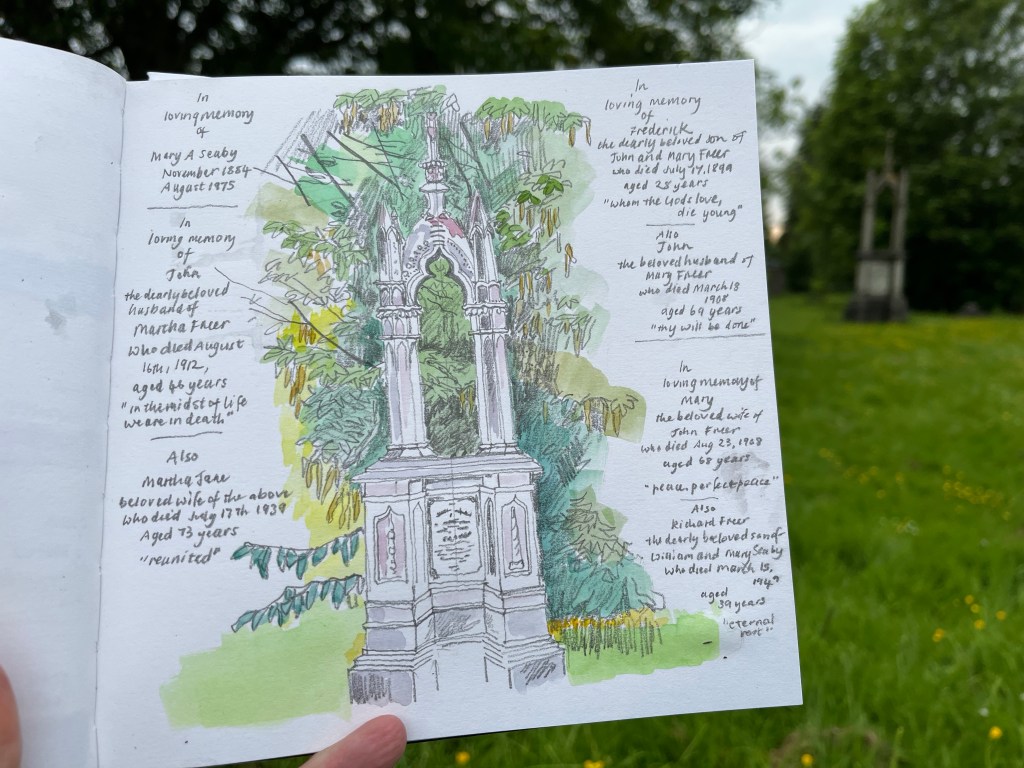 In
loving memory
of
Mary A Seaby
November 1884
August 1975
In
loving memory
of
John
the dearly beloved
husband of
Martha Freer
who died August
16th, 1912,
aged 46 years
"in the midst of life
we are in death"
Also
Martha Jane
beloved wife of the above
who died July 17th 1939
Aged 73 years
"reunited"
In
loving memory
of
Frederick
the dearly beloved son of
John and Mary Freer
who died July 14, 1899
aged 28 years
"whom the Gods love,
die young"
Also
John
the beloved husband of
Mary Freer
who died March 18
1908
aged 69 years
"thy will be done"
In
loving memory of
Mary
the beloved wife of
John Freer
who died Aug 23, 1908
aged 68 years
"peace, perfect peace"
Also
Richard Freer
the dearly beloved son of
William and Mary Seaby
who died March 15,
aged
39 years
"eternal
rest"